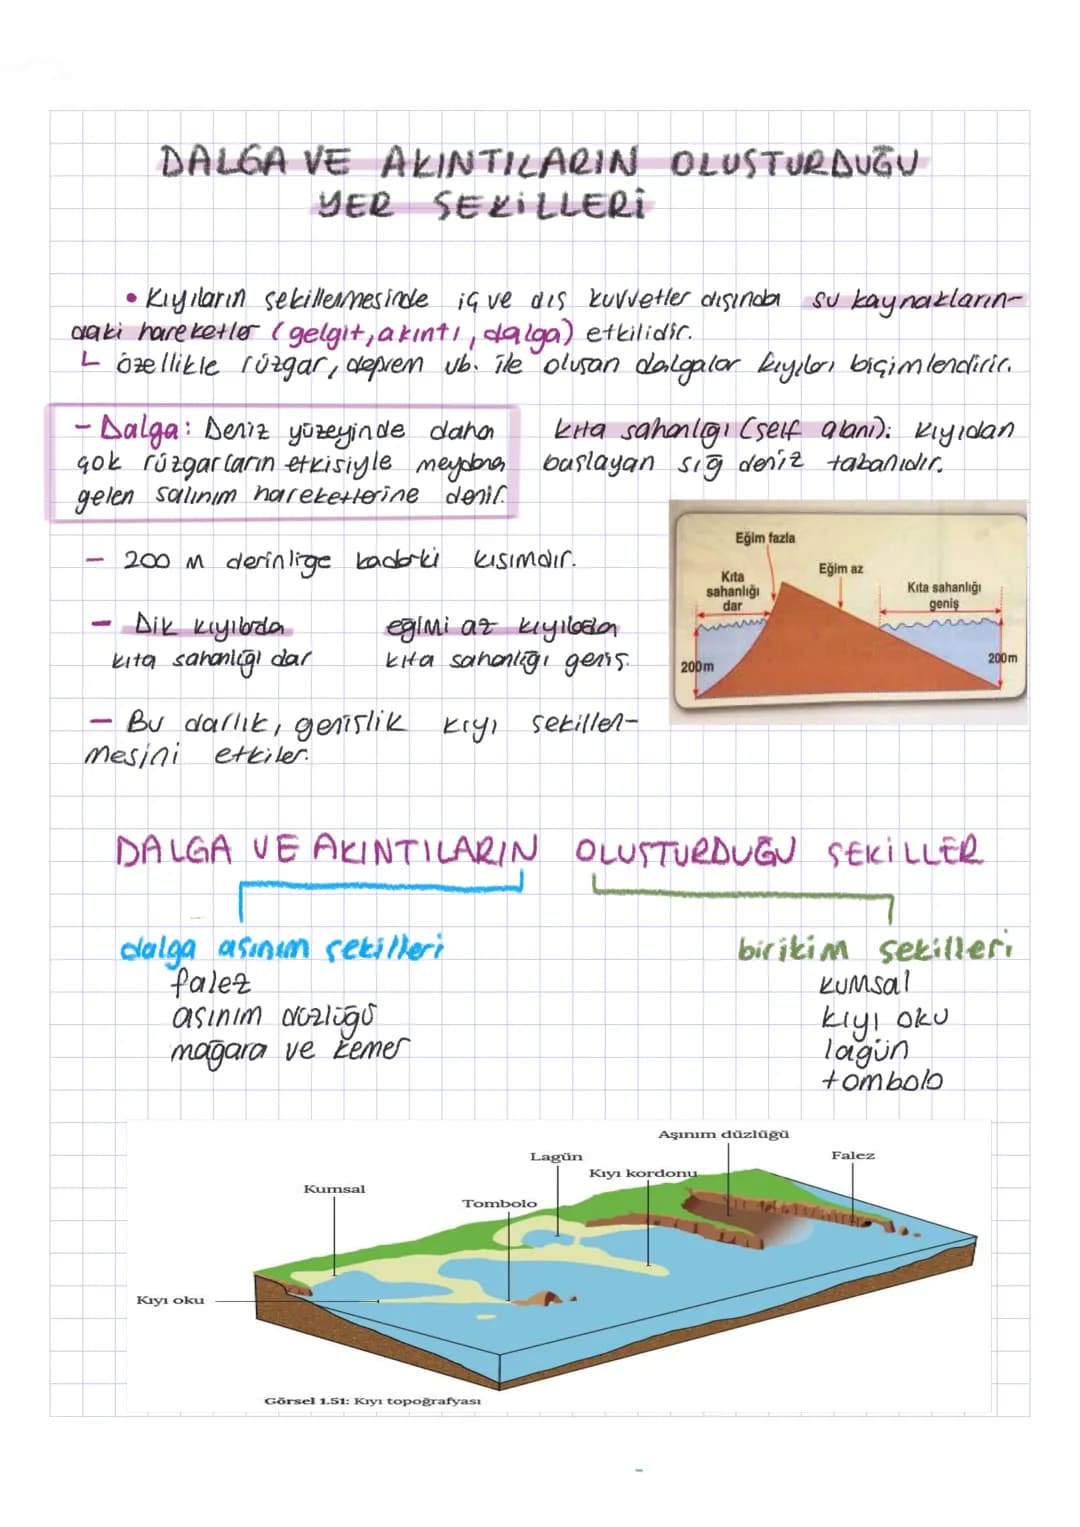 DALGA VE AKINTILARIN OLUŞTURDUĞU
YER ŞEKİLLERİ
• Kıyıların şekillenmesinde iç ve dış kuvvetler dışında su kaynakların-
daki hareketler (gelgit, akıntı, dalga) etkilidir.
↳ özellikle rüzgar, deprem vb. ile oluşan dalgalar kıyıları biçimlendirir.
- Dalga: Deniz yüzeyinde daha
çok rüzgarların etkisiyle meydana
gelen salınım hareketlerine denir.
kıta sahanlığı (şelf alanı): kıyıdan
başlayan sığ deniz tabanıdır.
- 200 m derinliğe kadarki kısımdır.
- Dik kıyılarda
kıta sahanlığı dar
eğimi az kıyılarda
kıta sahanlığı geniş.
- Bu darlık, genişlik kıyı şekillen-
mesini etkiler.
Eğim fazla
Eğim az
Kıta
sahanlığı
dar
Kıta sahanlığı
geniş
200m
200m
DALGA VE AKINTILARIN OLUŞTURDUĞU ŞEKİLLER
dalga aşınım şekilleri
falez
aşınım düzlüğü
mağara ve kemer
birikim şekilleri
kumsal
kıyı oku
lagün
tombolo
Aşınım düzlüğü
Lagün
Falez
Kıyı kordonu
Kumsal
Tombolo
Kıyı oku
Görsel 1.51: Kıyı topoğrafyası